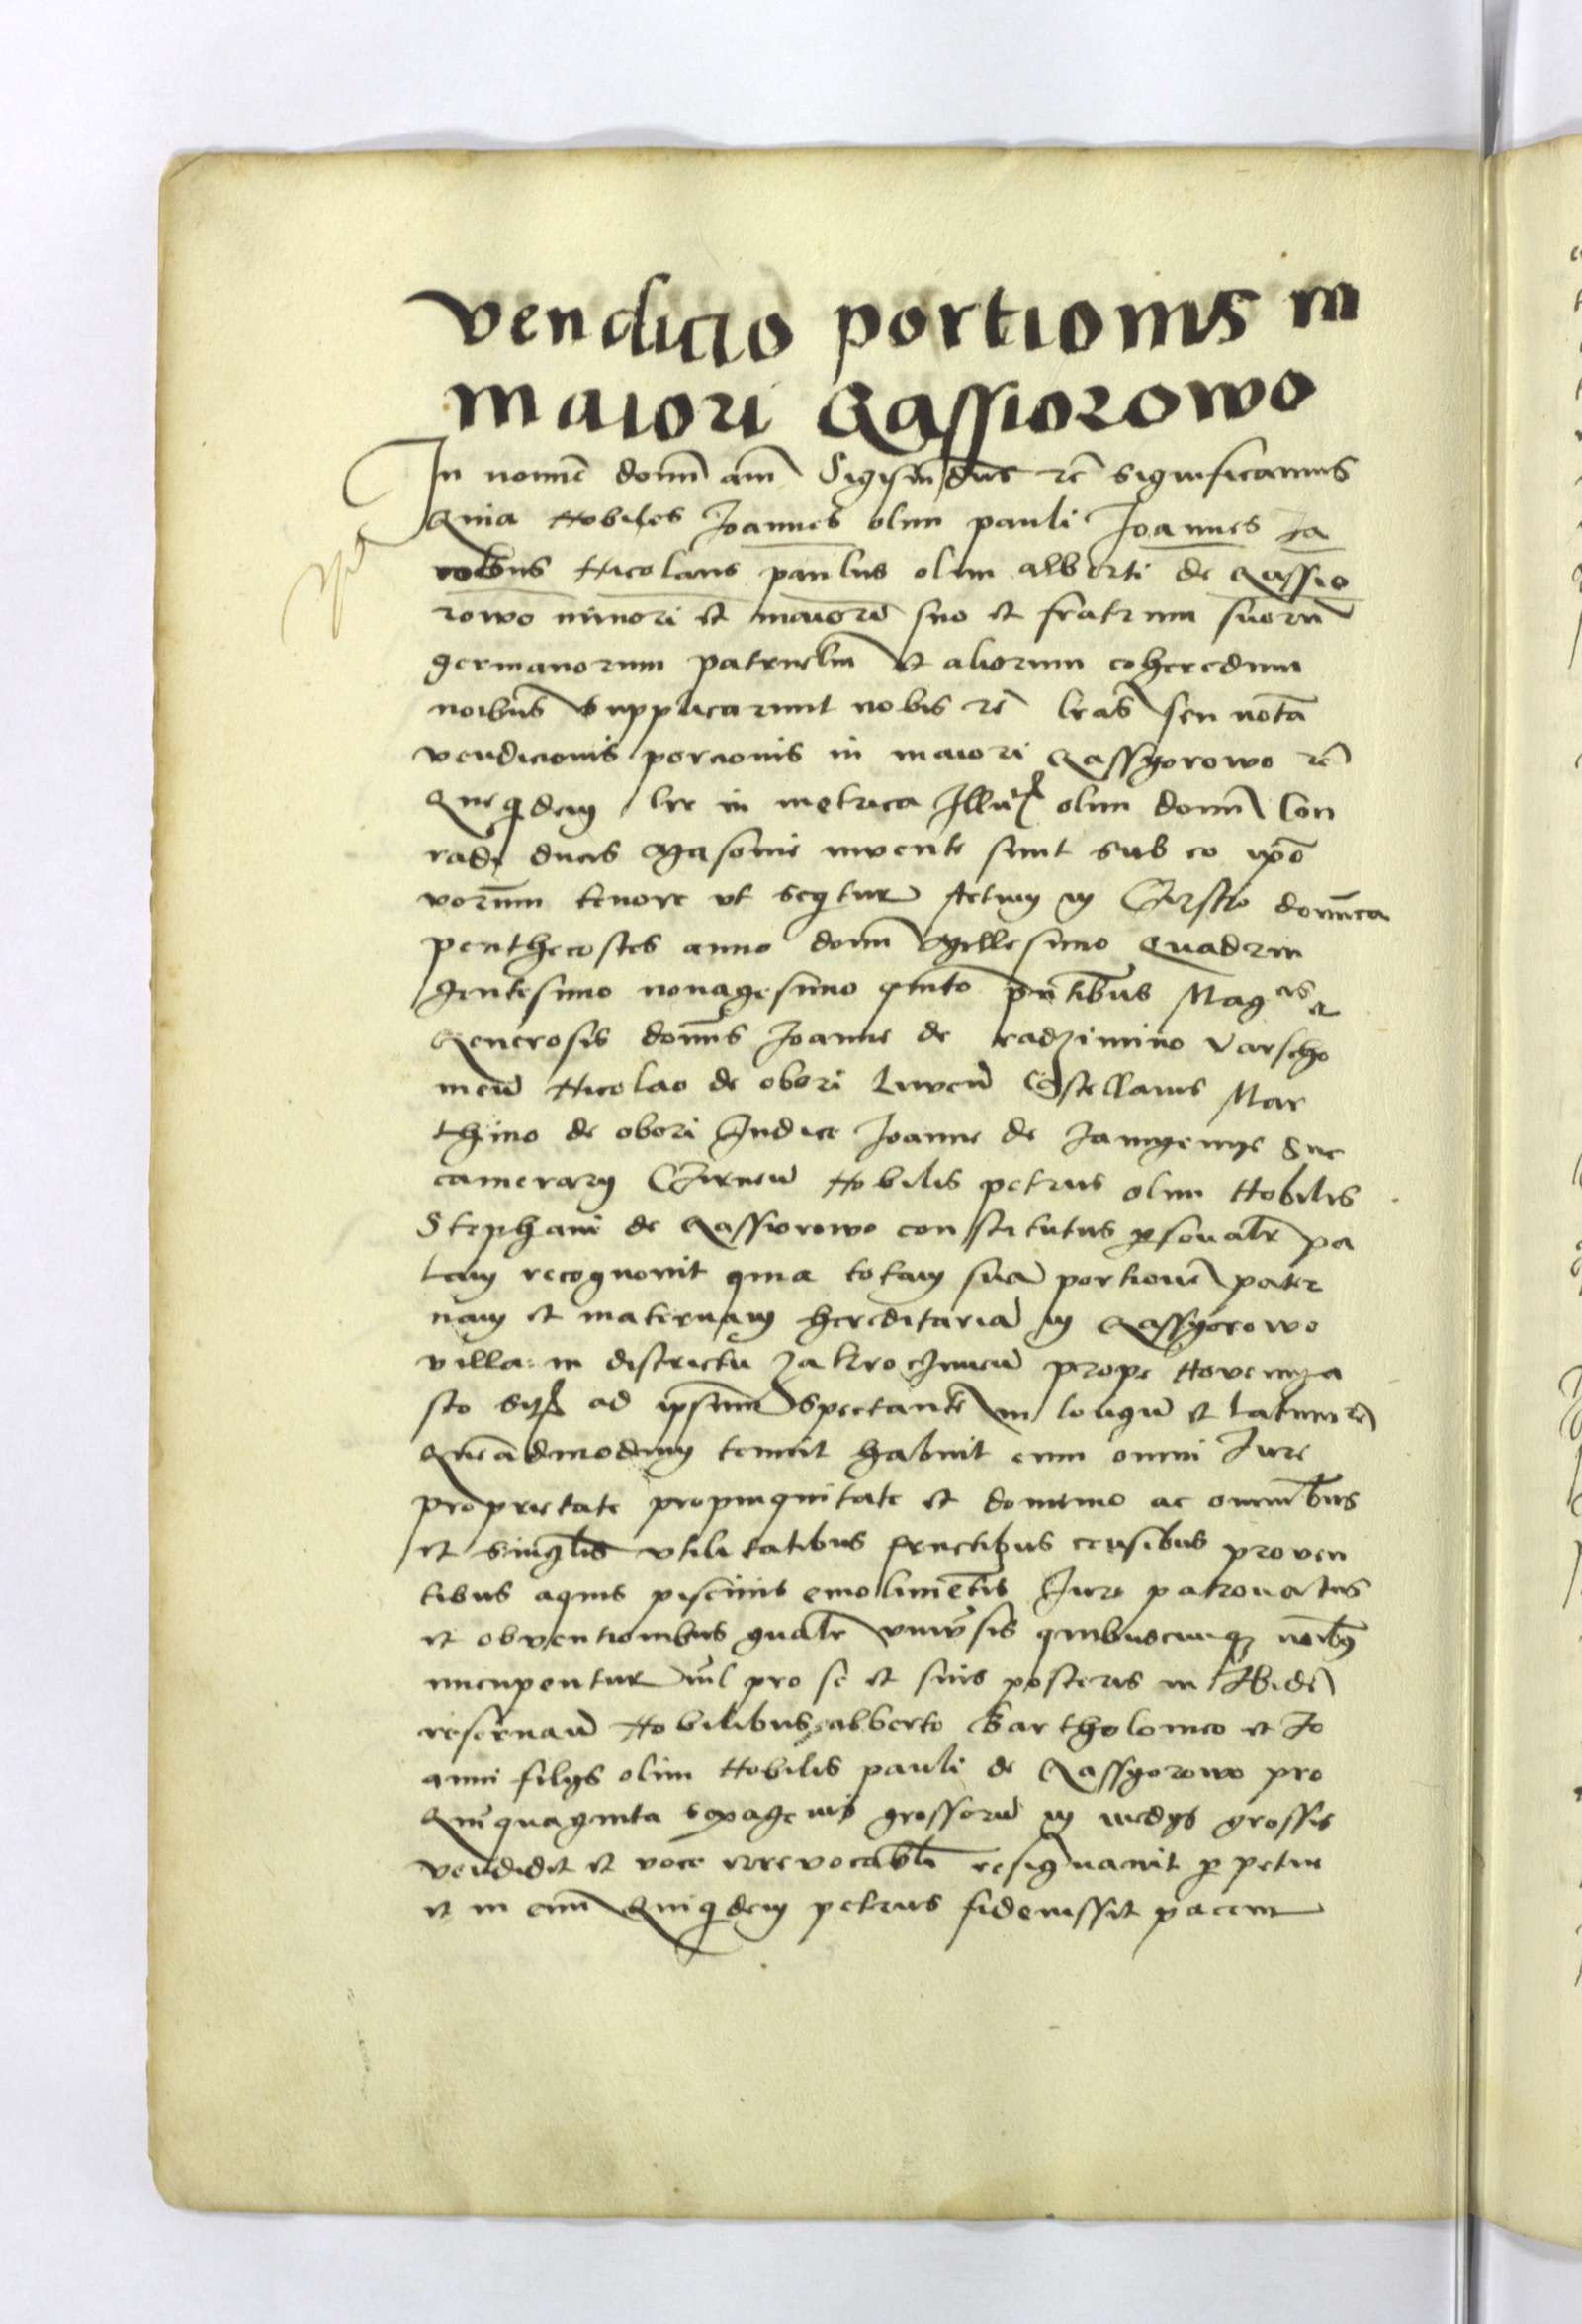 Vendicio portionis in
maiori Gassiorowo
In nomē domī amē Sigismūdus rē significamus
Quia Nobiles Joannes olim pauli Joannes Ja
cobus Nicolaus paulus olim alberti de Gassio
rowo minori et maiore suo et fratrum suorū
germanorum patruelīm et aliorum coheredum
noibus supplicarunt nobis rē lras seu notā
vendicionis porcionis in maiori Gassyorowo rē
Queqdem lre in metrica Illu olim domī Con
radi ducis Masovie invente sunt sub eo ipō
vorum tenore ut seqtur Actum in Czirsko domīca
penthecostes anno domī Millesimo Quadrin
gentesimo nonagesimo quinto pntibus Magcis et
Generosis domīs Joanne de radzimino Varscho
vieñ Nicolao de obori Liveñ Castellanis Mar
thino de obori Iudice Joanne de Suc
camerary Czirneñ Nobilis petrus olim Nobilis
Stephani de Gassiorowo constitutus psonalr pa
lam recognovit quia totam suā portionē pater
nam et maternam hereditariā in Gassyorowo
villa in districtu Zakrocimeñ prope Novemya
sto sitā ad ipsum spectantē in longū et latum rē
Queādmodum tenuit habuit cum omni Jure
proprietate propinquitate et dominio ac omnibus
et singlis utilitatibus fructibus censibus proven
tibus aquis piscinis emolimētis Jure patronatus
et obventionibus gnalr univsis quibuscunqz noibus
nncupentur nil pro se et suis posteris in Ibidē
reservanī Nobilibus alberto Bartholomeo et Jo
anni filys olim Nobilis pauli de Gassyorowo pro
Quīquaginta sexagenis grossorū in medys grossis
vendidit et voce irrevocabli resignavit ppetue
et in evū Quiqdem petrus fideiussit pacem